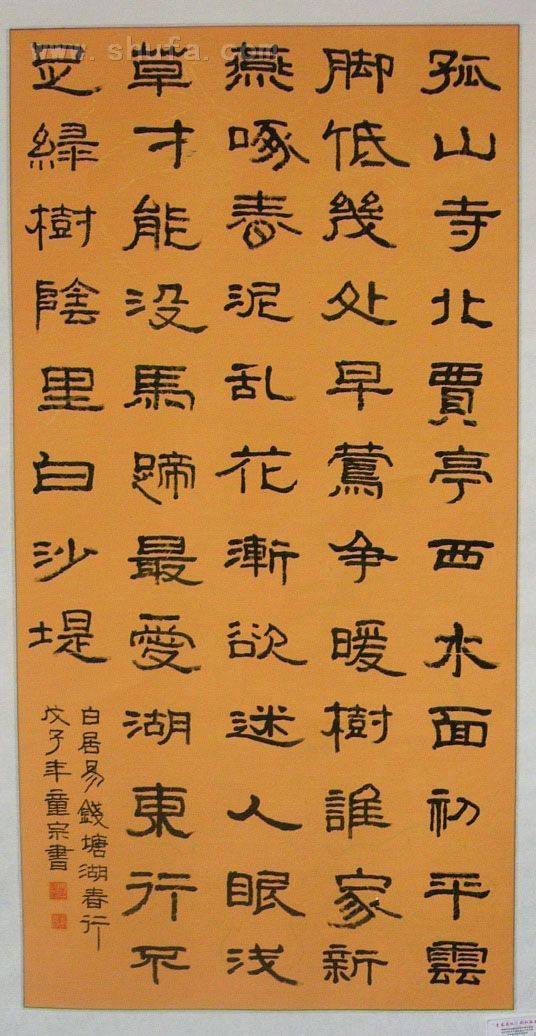 www.shufa.com
孤山寺北賈亭西水面初平雲
脚低幾处早鶯争暖樹誰家新
燕啄春泥乱花漸欲迷人眠浅
草才能没馬蹄最愛湖東行不
足緑樹陰里白沙堤
白居易錢塘湖春行
戊子年童宗書